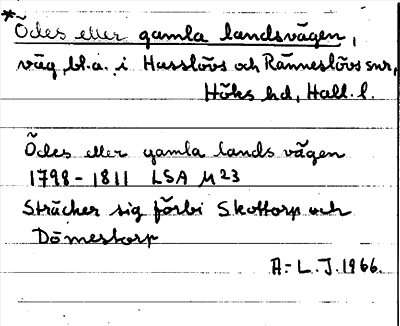 *Ödes eller gamla landsvägen,
väg bl.a. i Hasslövs och Ränneslövs snr,
Höks hd, Hall. l.
Ödes eller gamla lands vägen
1798-1811 LSA M23
Sträcker sig förbi Skottorp och
Dömestorp
A.-L. J. 1966.